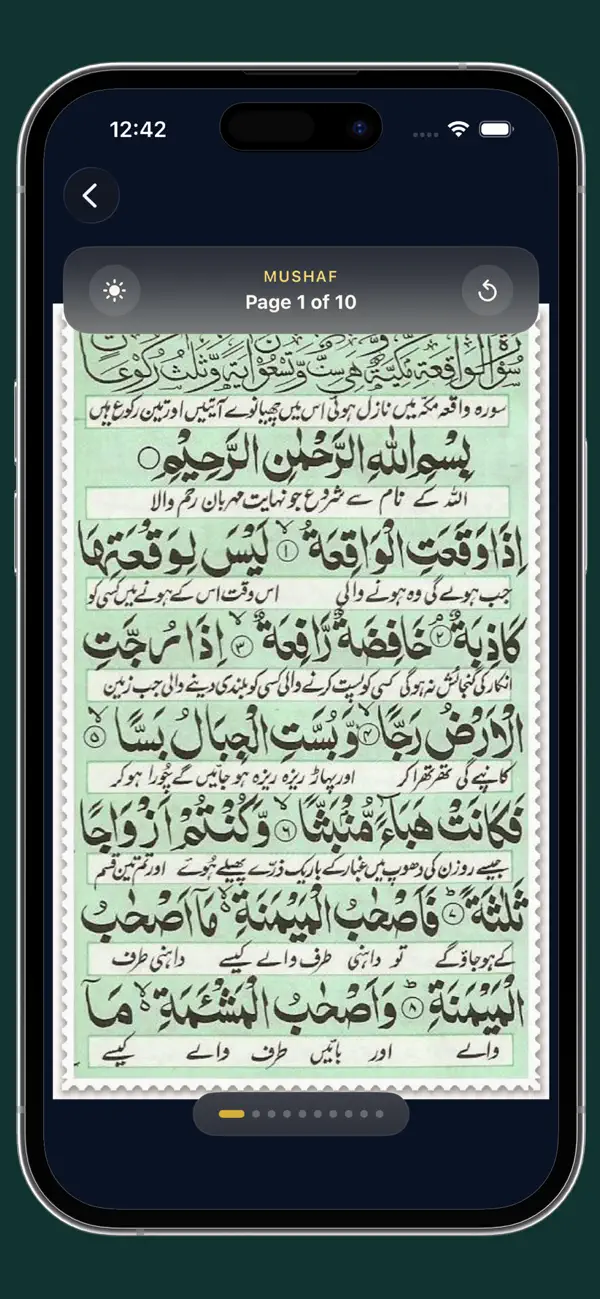 12:42
MUSHAF
Page 1 of 10
سُوْرَةُ الْوَاقِعَةِ مَكِّيَّةٌ وَّهِىَ سِتٌّ وَّتِسْعُوْنَ اٰيَةً وَّثَلٰثُ رُكُوْعَاتٍ
سورہ واقعہ مکہ میں نازل ہوئی اس میں چھیانوے آیتیں اور تین رکوع ہیں
بِسْمِ اللّٰهِ الرَّحْمٰنِ الرَّحِيْمِ ○
اللہ کے نام سے شروع جو نہایت مہربان رحم والا
اِذَا وَقَعَتِ الْوَاقِعَةُ ۙ﴿۱﴾ لَيْسَ لِوَقْعَتِهَا
جب ہولے گی وہ ہونے والی اس وقت اس کے ہونے میں کسی کو
كَاذِبَةٌ ۘ﴿۲﴾ خَافِضَةٌ رَّافِعَةٌ ۙ﴿۳﴾ اِذَا رُجَّتِ
انکار کی گنجائش نہ ہوگی کسی کو پست کرنے والی کسی کو بلندی دینے والی جب زمین
الْاَرْضُ رَجًّا ۙ﴿۴﴾ وَّبُسَّتِ الْجِبَالُ بَسًّا ۙ﴿۵﴾
کانپے گی تھرتھرا کر اور پہاڑ ریزہ ریزہ ہو جائیں گے چُورا ہو کر
فَكَانَتْ هَبَآءً مُّنْۢبَثًّا ۙ﴿۶﴾ وَّكُنْتُمْ اَزْوَاجًا
جیسے روزن کی دھوپ میں غبار کے باریک ذرّے پھیلے ہُوئے اور تم تین قسم
ثَلٰثَةً ؕ﴿۷﴾ فَاَصْحٰبُ الْمَيْمَنَةِ ۙ۬ مَاۤ اَصْحٰبُ
کے ہو جاؤ گے تو داہنی طرف والے کیسے داہنی طرف
الْمَيْمَنَةِ ؕ﴿۸﴾ وَاَصْحٰبُ الْمَشْـَٔمَةِ ۙ۬ مَاۤ
والے اور بائیں طرف والے کیسے